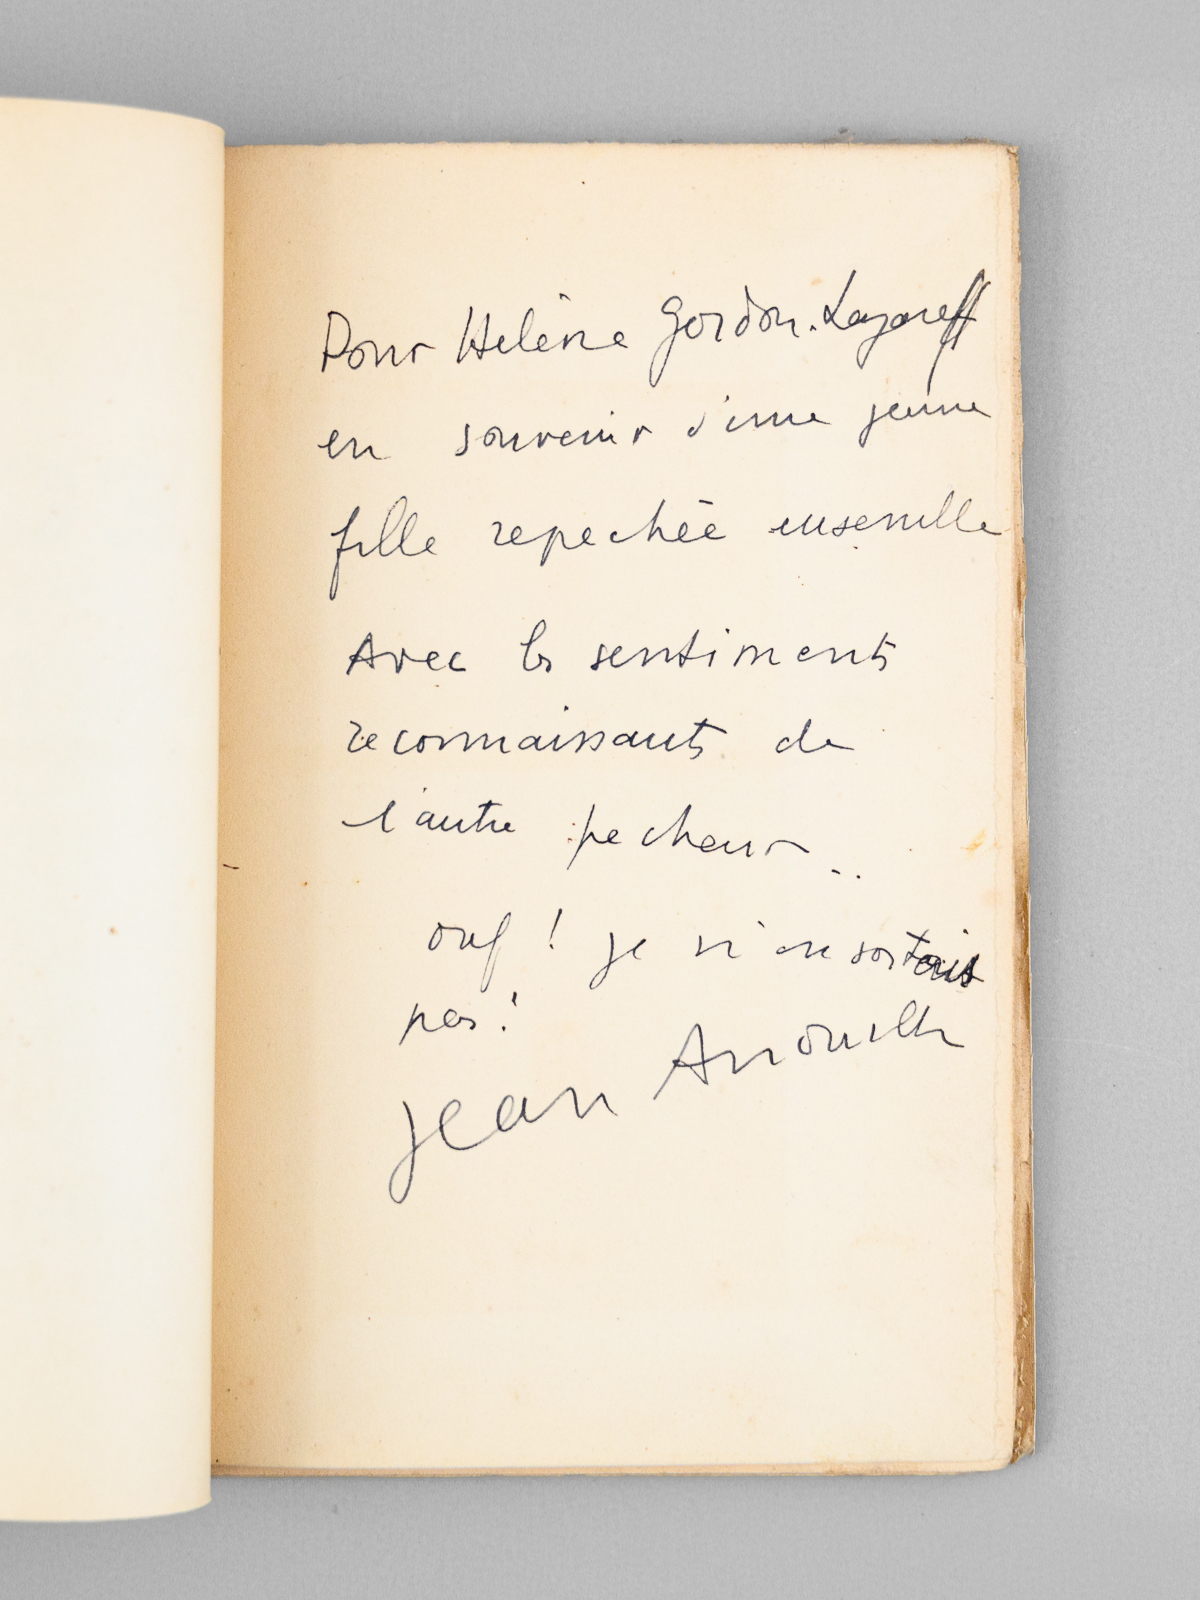 Pour Helène Gordon. Lazareff
en souvenir d'une jeune
fille repechée ensemble
Avec les sentiments
reconnaissants de
l'autre pecheur...
ouf ! je n'en sortais
pas !
Jean Anouilh